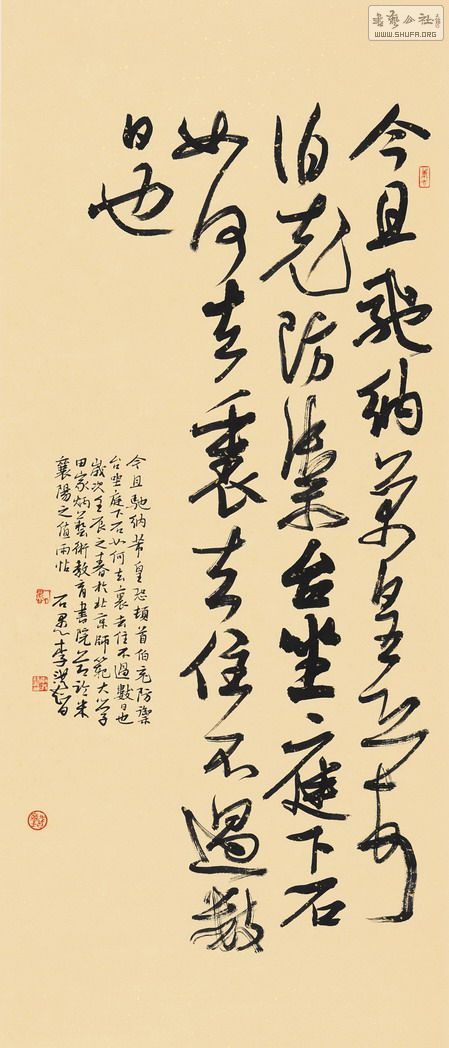 今且馳納芾皇恐頓首
伯充防禦台坐庭下石
如何去裏去住不過數
日也
今且馳納芾皇恐頓首伯充防禦
台坐庭下石如何去裏去住不過數日也
歲次壬辰之春於北京師範大學
田家炳藝術教育書院節臨米
襄陽之值雨帖
石墨李洪智
書藝公社
WWW.SHUFA.ORG